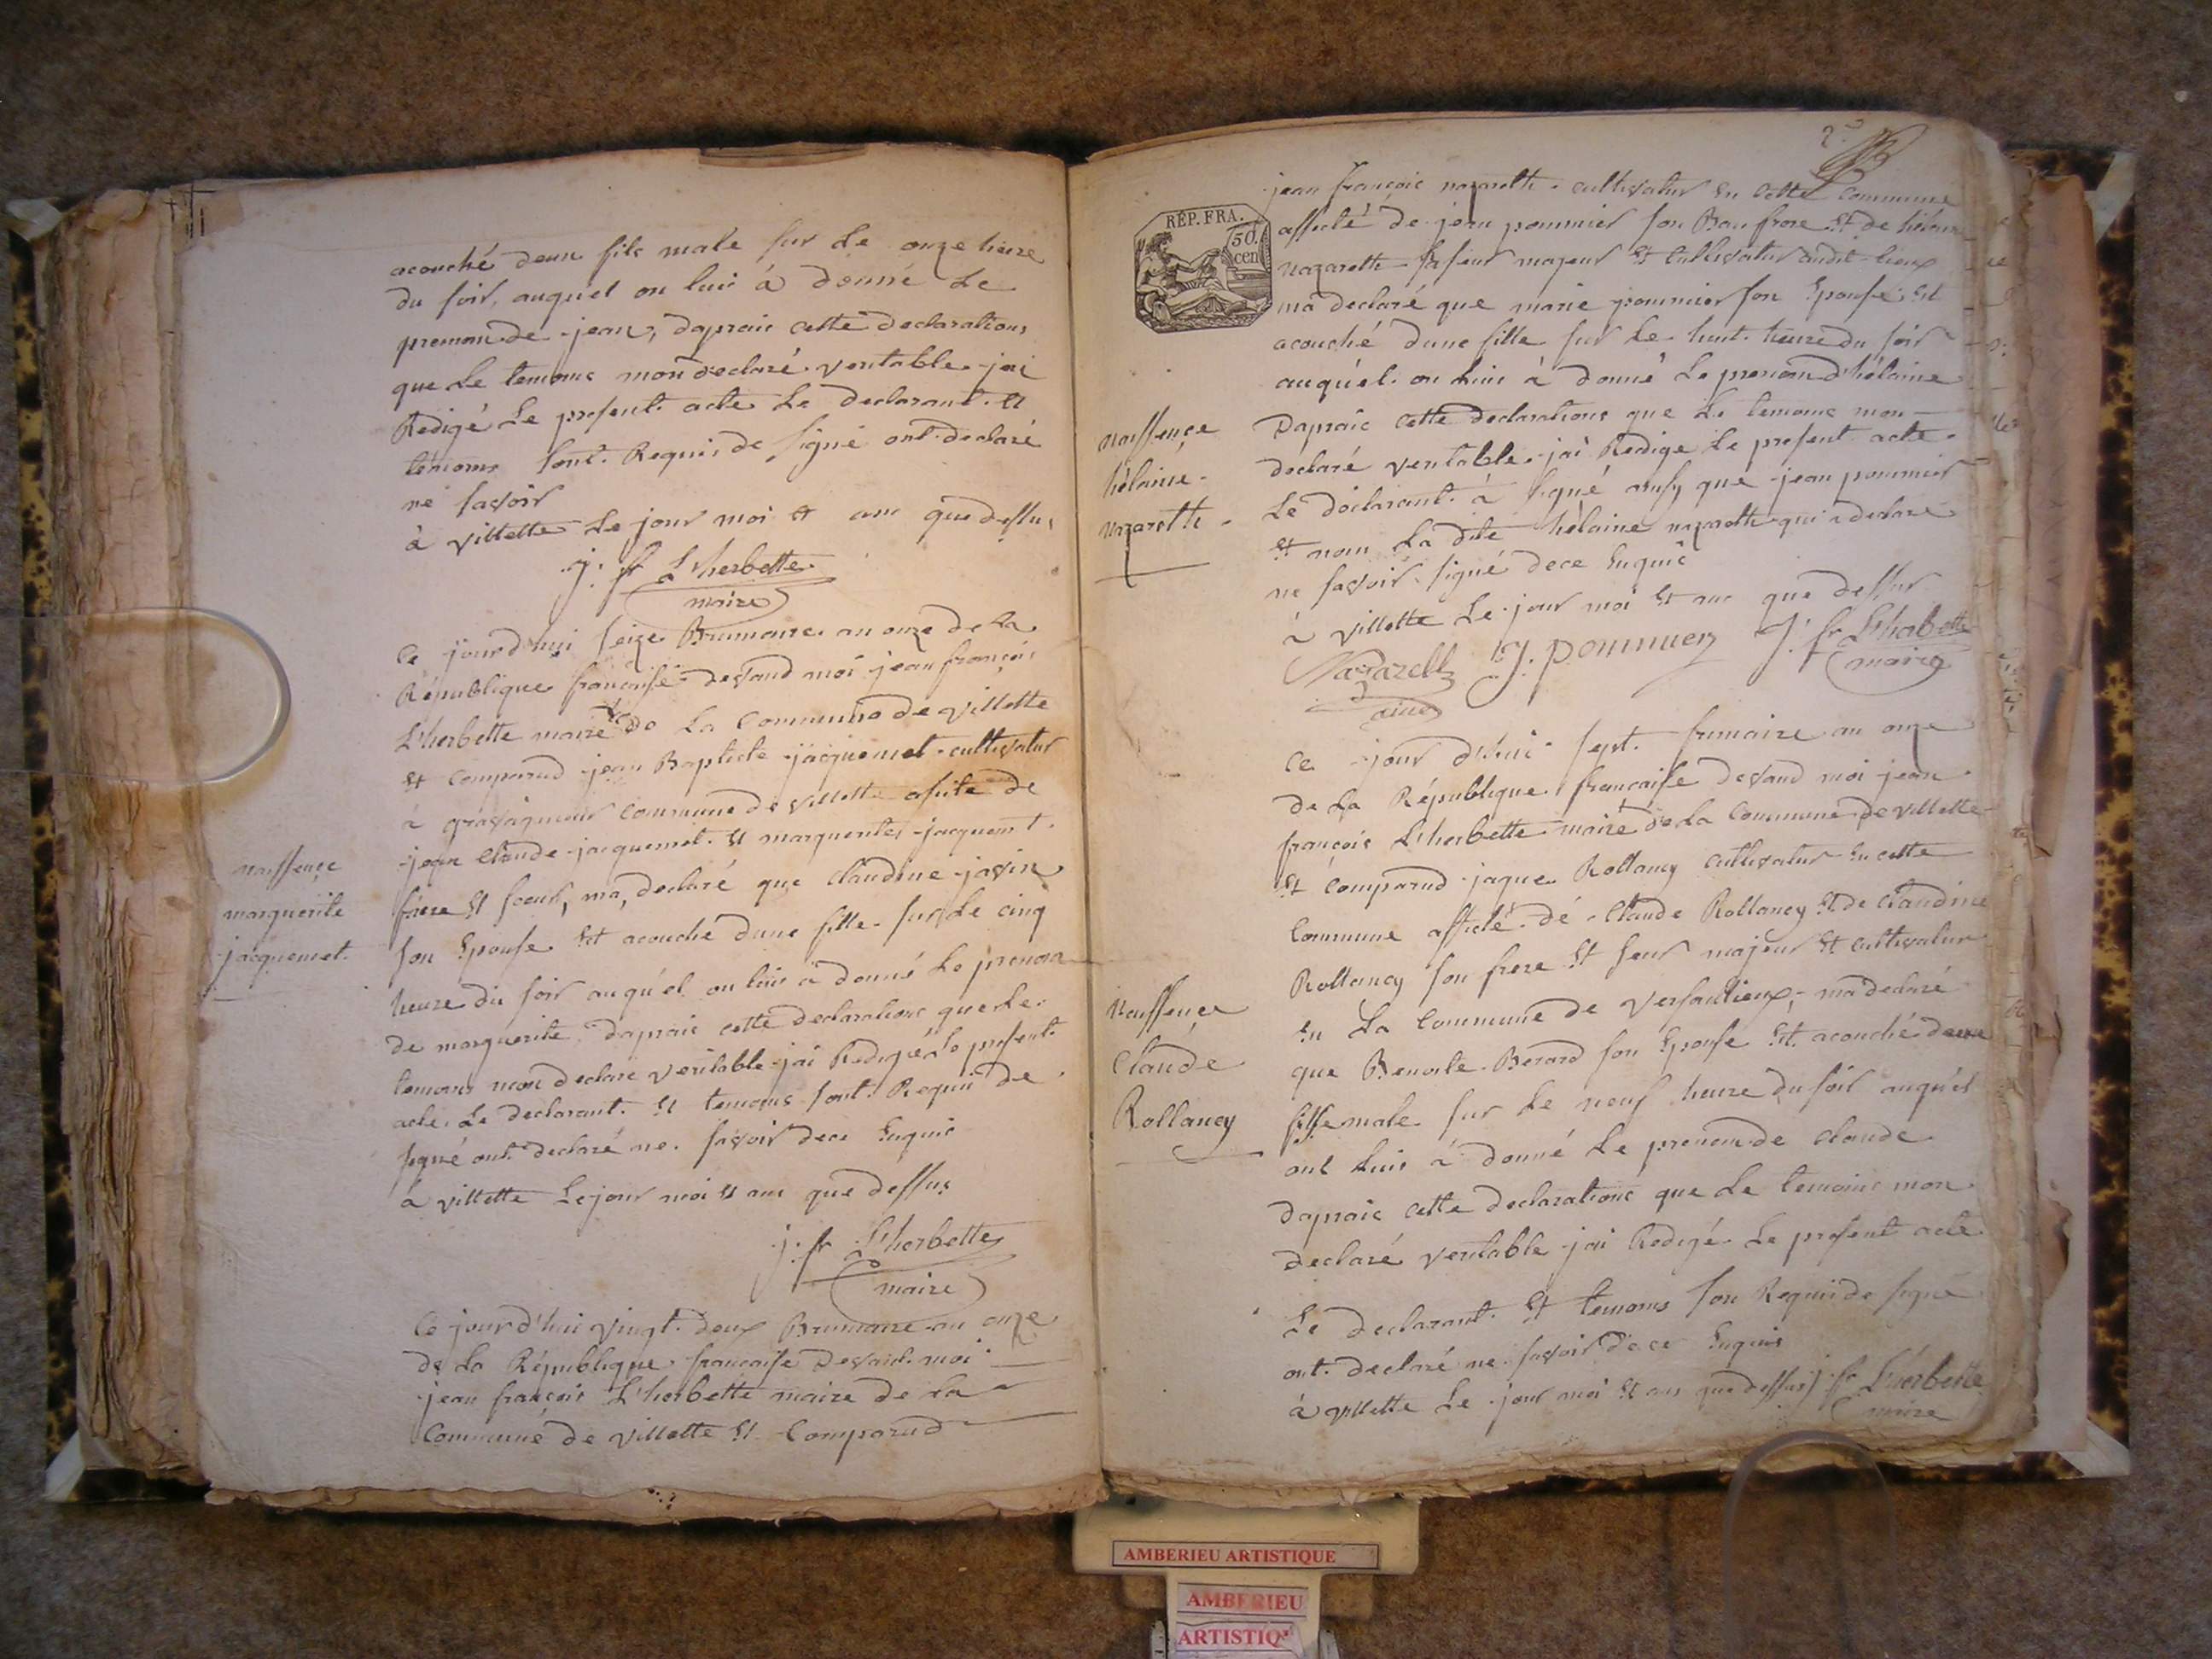 acouché deun fils male sur le onze heure
du soir, auquel on luis à donné le
premon de jean, dapraic cette declarations
que le temoins mon declaré veritable jai
Redigé le present acte le declarant et
temoins sont Requis de signé ont declaré
ne savoir
à villette le jour moi et anc que dessus
j. fr L'herbette
maire
naissençe
marguerite
jacquemet
Ce jourd'hui seize Brumaire an onze de la
République francaise devand moi jean françois
L'herbette maire de la Commune de villette
et comparud jean Baptiste jacquemet cultivatur
à gravagnieux commune de villette asisté de
jean claude jacquemet et marguerites jacquemet
frere et soeur, ma declaré que claudine javin
son Epouse Est acouché dune fille sur le cinq
heure du soir auquel on luis à donné le prenom
de marguerite, dapraic cette declarations que le
temoins mon declaré veritable jai Redigé le present
acte, le declarant et temoins sont Requis de
signé ont declaré ne savoir dece Enquis
à villette le jour moi et anc que dessus
j. fr L'herbette
maire
Ce jourd'hui vingt deux Brumaire an onze
de la République francaise devand moi
jean françois L'herbette maire de la
Commune de villette et Comparud
2
REP. FRA.
50
cen
jean françois nazareth cultivatur En cette Commune
assisté de jean pommier son Bau frere et de hélaine
nazareth sa seur majeur et Cultivatur audit lieux
ma declaré que marie pommier son Epouse Est
acouché dune fille sur le huit heure du soir
auquel on luis à donné le prenom d'hélaine
naissençe
hélaine
nazareth
Dapraic cette declarations que le temoins mon
déclaré veritable jai Redige le present acte
le déclarant à signé ainsy que jean pommier
et nom la dite hélaine nazareth qui a declaré
ne savoir signé dece Enquis
à villette le jour moi et anc que dessus
Nazareth J. pommier J. fr L'herbette
ainé maire
Ce jour d'hui sept frimaire an onze
de la République francaise devand moi jean
françois L'herbette maire de la Commune de villette
et Comparud jaque Rollancy Cultivatur En cette
Commune assisté dé Claude Rollancy et de Claudine
Rollancy son frere et seur majeur et cultivatur
En la Commune de Versaulieux, ma declaré
que Benoite Berard son Epouse Est acouché deun
Naissençe
Claude
Rollancy
fils male sur le neuf heure du soir auquel
ont luis à donné le prenom de claude
dapraic cette declarations que le temoins mon
declaré veritable jai Redigé le present acte
le declarant et temoins son Requis de signé
ont declaré ne savoir de ce Enquis
à villette le jour moi et anc que dessus j. fr L'herbette
maire
AMBERIEU ARTISTIQUE
AMBERIEU
ARTISTIQ